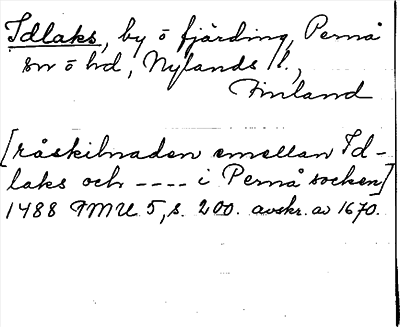 Idlaks, by o fjärding, Pernå
sn o hd, Nylands l.,
Finland
[råskilnaden emellan Id-
laks och ---- i Pernå socken]
1488 FMU 5, s. 200. avskr. av 1670.